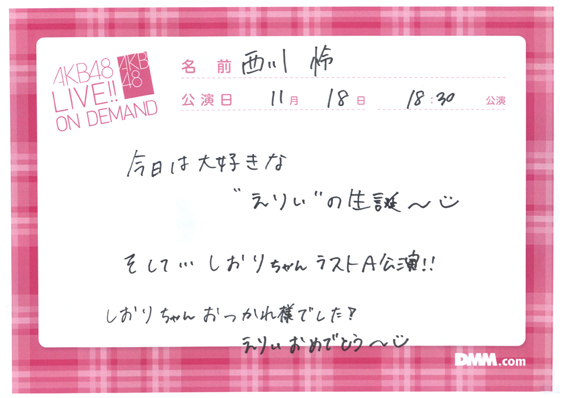 AKB48
LIVE!!
ON DEMAND
AKB
48
名前 西川 怜
公演日 11月 18日 18:30 公演
今日は大好きな
"えりい"の生誕〜
そして… しおりちゃん ラストA公演!!
しおりちゃん おつかれ様でした!
えりい おめでとう〜
DMM.com